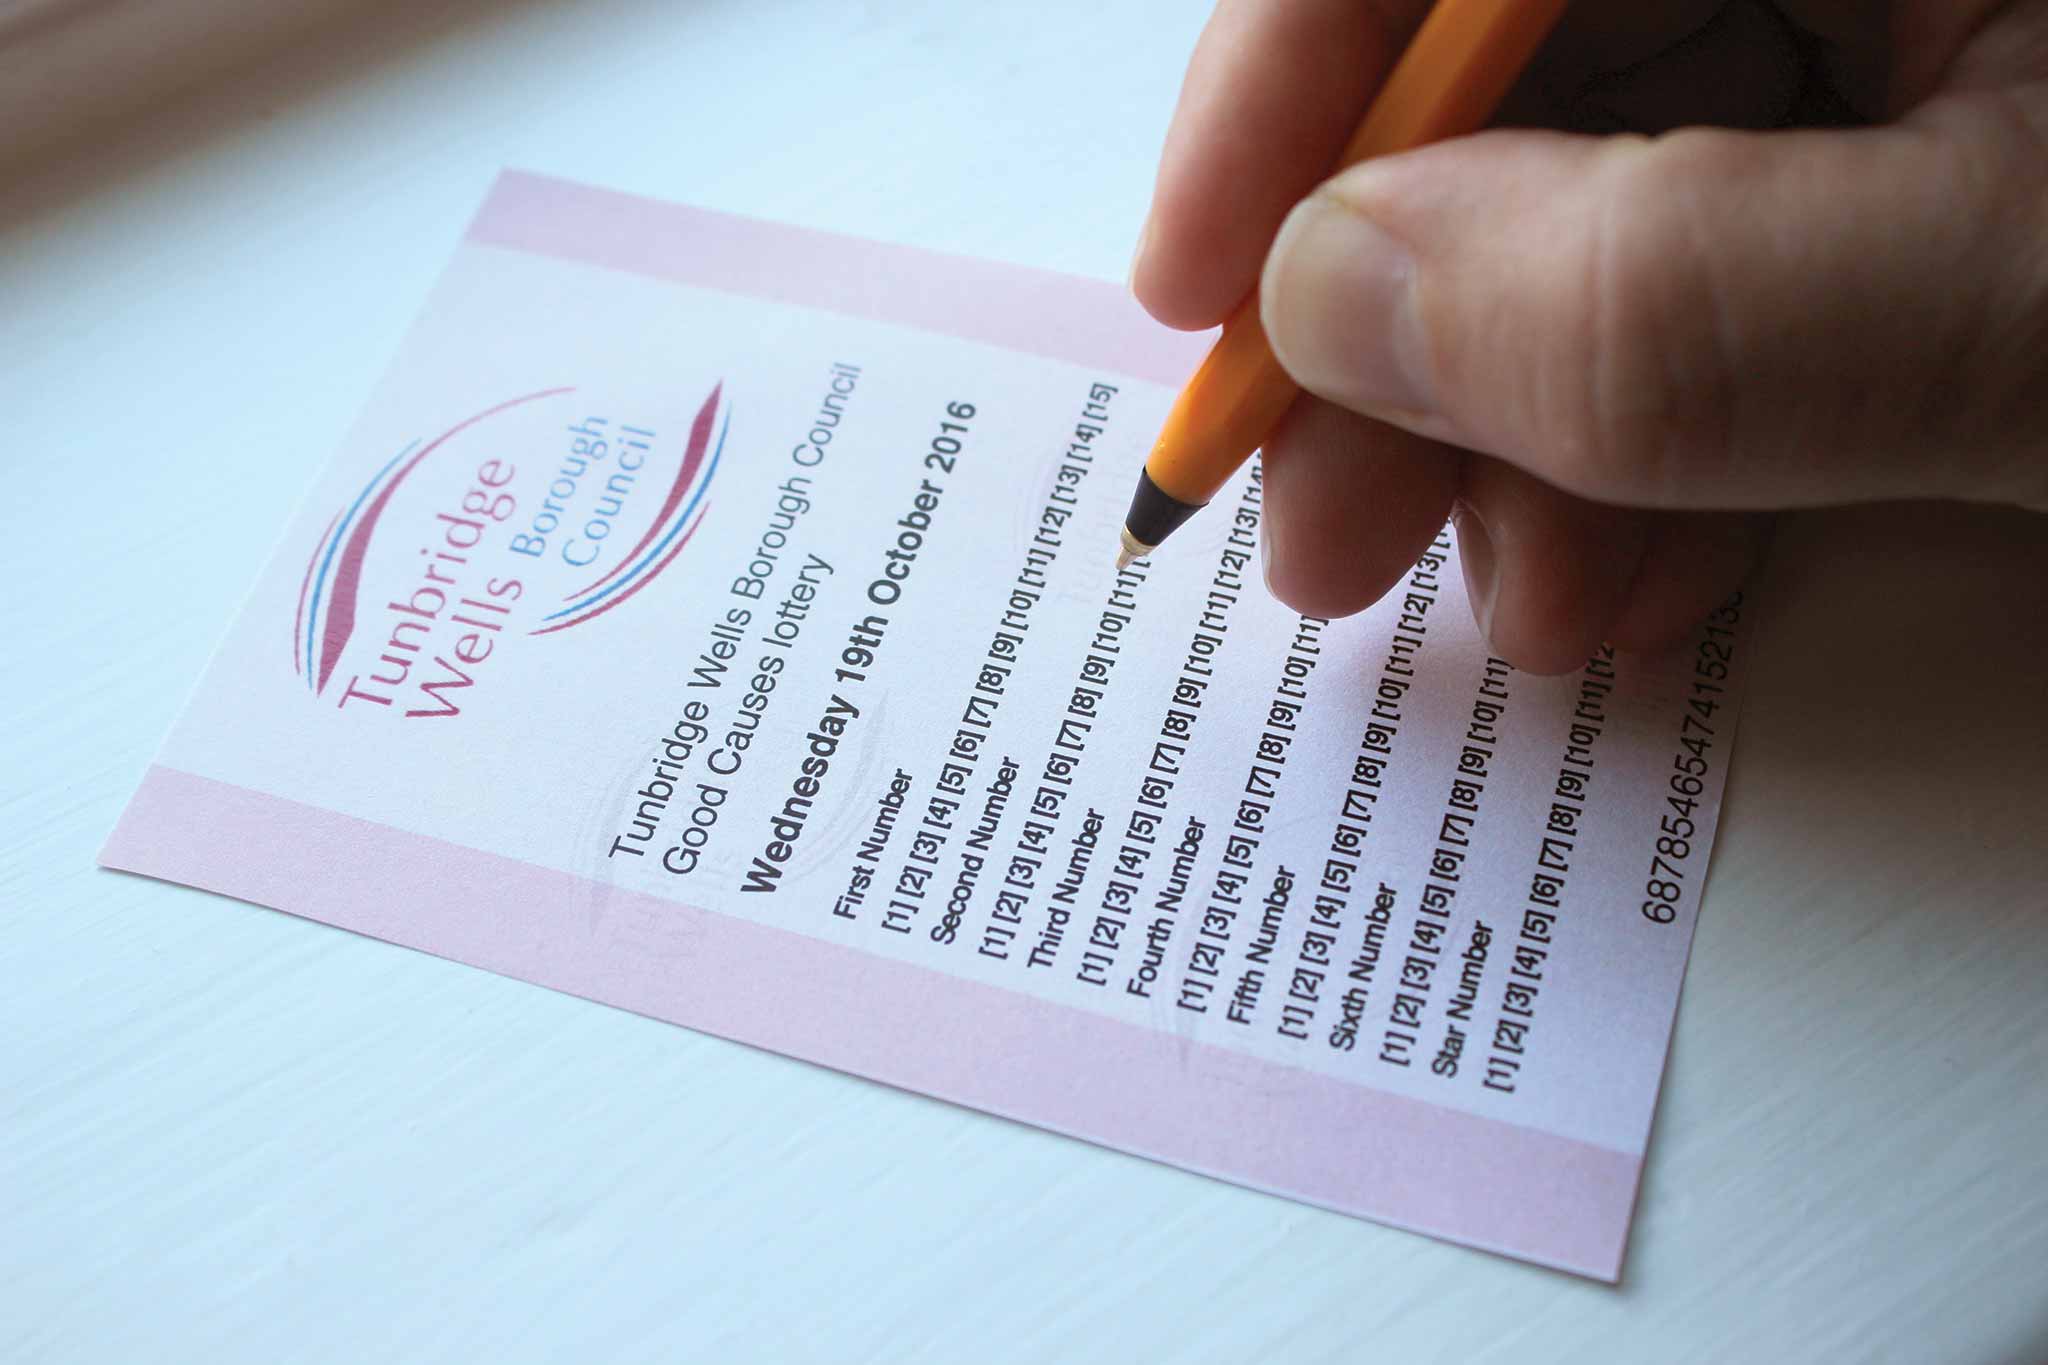 Tunbridge
Wells
Borough
Council
Tunbridge Wells Borough Council
Good Causes lottery
Wednesday 19th October 2016
First Number
[1] [2] [3] [4] [5] [6] [7] [8] [9] [10] [11] [12] [13] [14] [15]
Second Number
[1] [2] [3] [4] [5] [6] [7] [8] [9] [10] [11]
Third Number
[1] [2] [3] [4] [5] [6] [7] [8] [9] [10] [11] [12] [13] [14]
Fourth Number
[1] [2] [3] [4] [5] [6] [7] [8] [9] [10] [11]
Fifth Number
[1] [2] [3] [4] [5] [6] [7] [8] [9] [10] [11] [12] [13]
Sixth Number
[1] [2] [3] [4] [5] [6] [7] [8] [9] [10] [11]
Star Number
[1] [2] [3] [4] [5] [6] [7] [8] [9] [10] [11] [12
68785465474152135